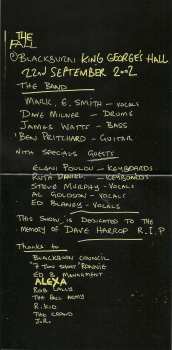 THE
FALL
@ BLACKBURN KING GEORGE'S HALL
22ND SEPTEMBER 2002
THE BAND
MARK. E. SMITH - VOCALS
DAVE MILNER - DRUMS
JAMES WATTS - BASS
BEN PRITCHARD - GUITAR
WITH SPECIALS GUESTS
ELENI POULOU - KEYBOARDS
RUTH DANIEL - KEYBOARDS
STEVE MURPHY - VOCALS
AL GOLDSON - VOCALS
ED BLANEY - VOCALS
THIS SHOW IS DEDICATED TO THE
MEMORY OF DAVE HARROP R.I.P
THANKS TO
BLACKBURN COUNCIL
"7 TON SHORT" RONNIE
ED B MANAGMENT
ALEXA
ROB
THE FALL ARMY
R. KID
THE CROWD
J.R.